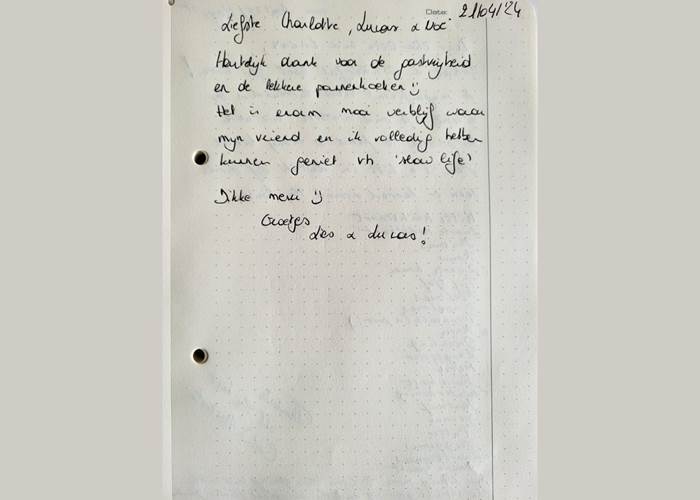 Date: 21/04/24
Liefste Charlotte, Lucas & Voc.
Hartelijk dank voor de gastvrijheid
en de lekkere pannenkoeken :)
Het is enorm mooi verblijf waar
mijn vriend en ik volledig hebben
kunnen geniet vh 'slow life'
Dikke merci :)
Groetjes
Lies & Lucas!